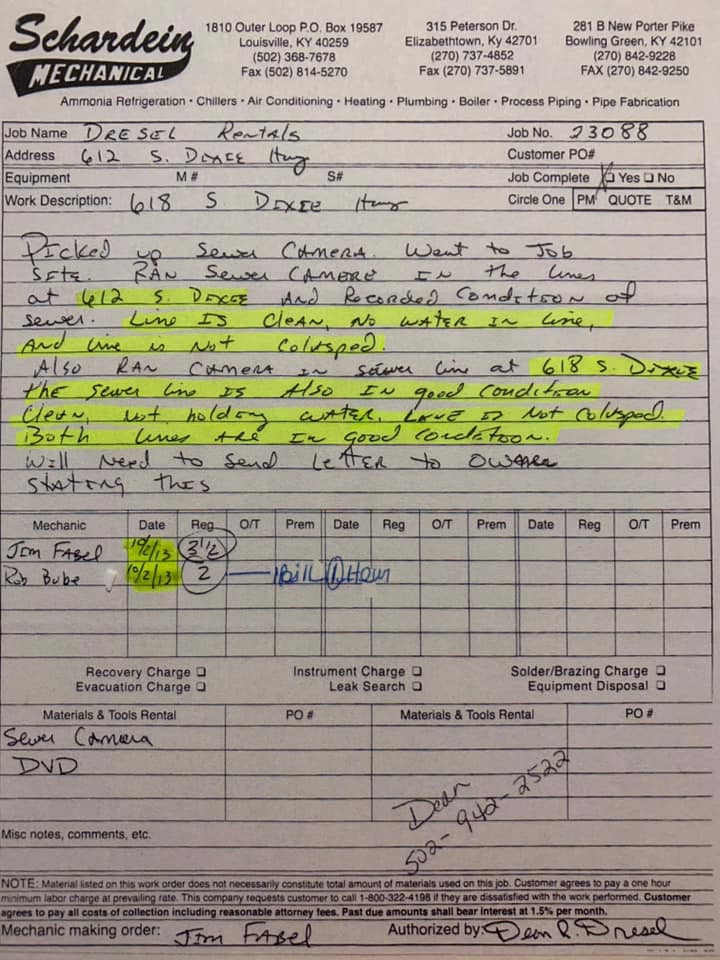 Schardein
MECHANICAL
1810 Outer Loop P.O. Box 19587
Louisville, KY 40259
(502) 368-7678
Fax (502) 814-5270
315 Peterson Dr.
Elizabethtown, Ky 42701
(270) 737-4852
Fax (270) 737-5891
281 B New Porter Pike
Bowling Green, KY 42101
(270) 842-9228
FAX (270) 842-9250
Ammonia Refrigeration • Chillers • Air Conditioning • Heating • Plumbing • Boiler • Process Piping • Pipe Fabrication
Job Name DRESEL Rentals Job No. 23088
Address 612 S. DIXIE Hwy Customer PO#
Equipment M # S# Job Complete Yes No
Work Description: 618 S DIXIE Hwy Circle One PM QUOTE T&M
Picked up Sewer CAMERA. Went to Job
SITE. RAN Sewer CAMERO IN the lines
at 612 S. DIXIE And Recorded Condition of
sewer. Line IS Clean, NO WATER IN line,
And line is Not Colupsped.
Also RAN CAMERA IN sewer line at 618 S. DIXIE
the sewer line IS Also IN good Condition
Clean, not holding water, Line IS Not Colupsed.
Both lines ARE IN good Condition.
Will Need to Send LetteR to Owner
STATING this
Mechanic Date Reg O/T Prem Date Reg O/T Prem Date Reg O/T Prem
Jim FABEL 10/2/13 3 1/2
Rob Bube 10/2/13 2 Bill 1 Hour
Recovery Charge Instrument Charge Solder/Brazing Charge
Evacuation Charge Leak Search Equipment Disposal
Materials & Tools Rental PO # Materials & Tools Rental PO #
Sewer Camera
DVD
Dean
502-942-2522
Misc notes, comments, etc.
NOTE: Material listed on this work order does not necessarily constitute total amount of materials used on this job. Customer agrees to pay a one hour
minimum labor charge at prevailing rate. This company requests customer to call 1-800-322-4198 if they are dissatisfied with the work performed. Customer
agrees to pay all costs of collection including reasonable attorney fees. Past due amounts shall bear interest at 1.5% per month.
Mechanic making order: Jim FABEL Authorized by: Dean R. Dresel